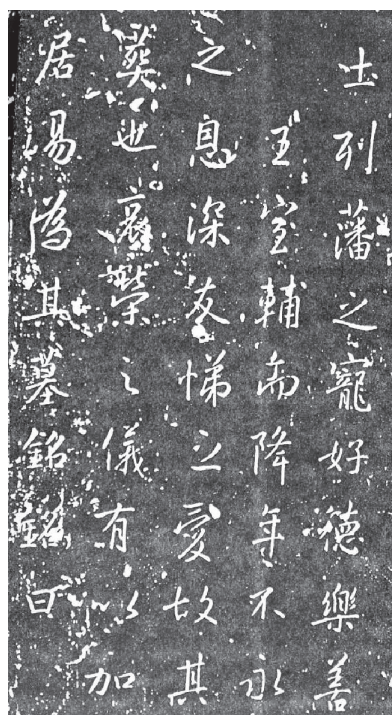 土列藩之寵好德樂善
王室輔而降年不永
之恩深友悌之愛故其
葬也哀榮之儀有以加
居易為其墓銘銘曰